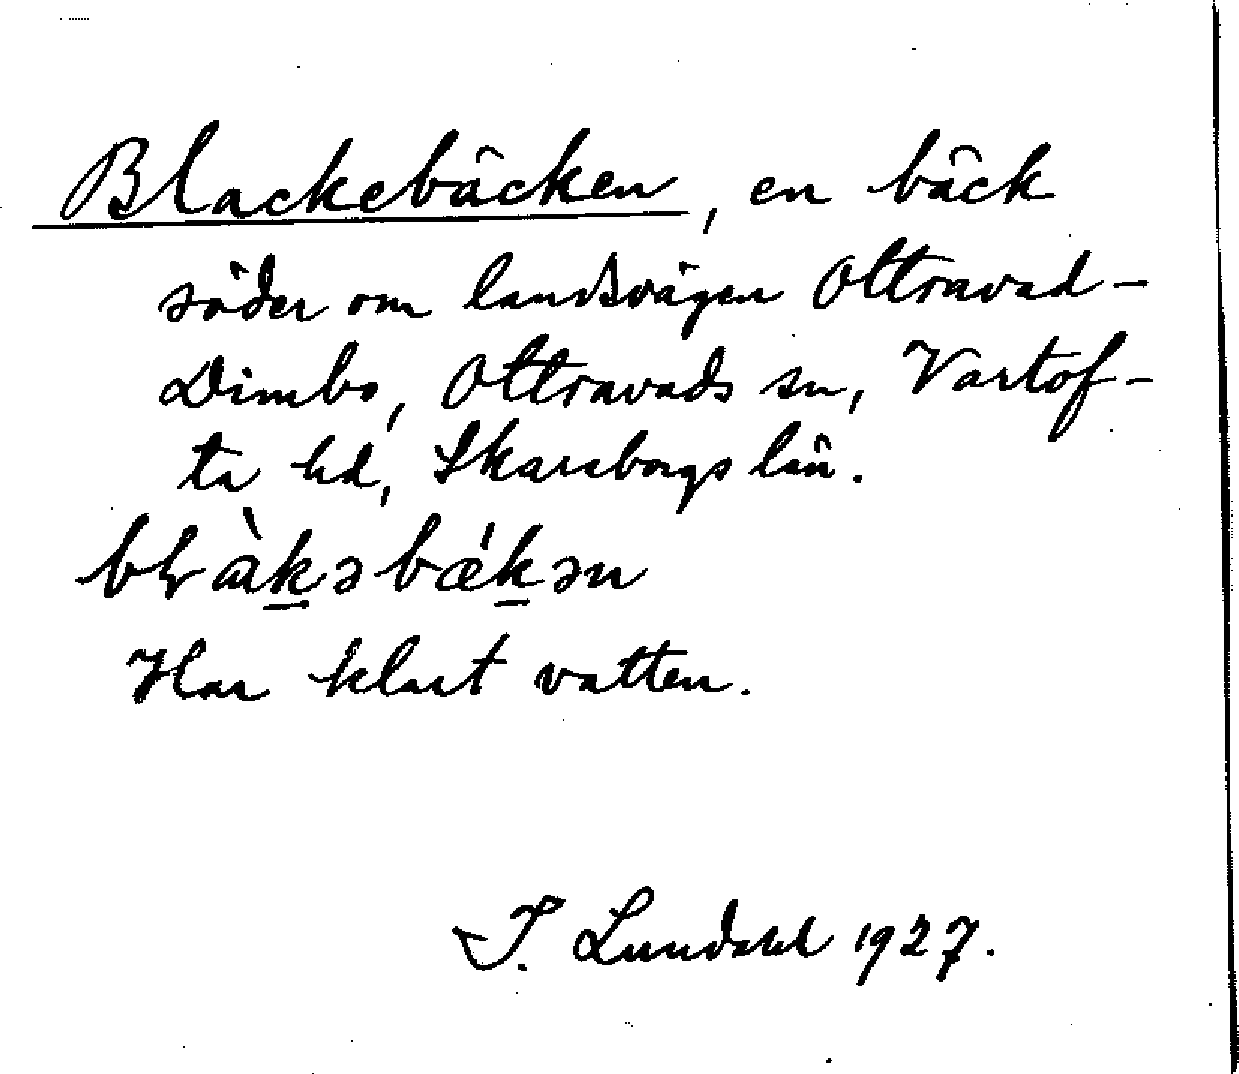 Blackebäcken, en bäck
söder om landsvägen Ottravad-
Dimbo, Ottravads sn, Vartof-
ta hd, Skaraborgs län.
blràkəbǽkən
Har klart vatten.
I. Lundahl 1927.